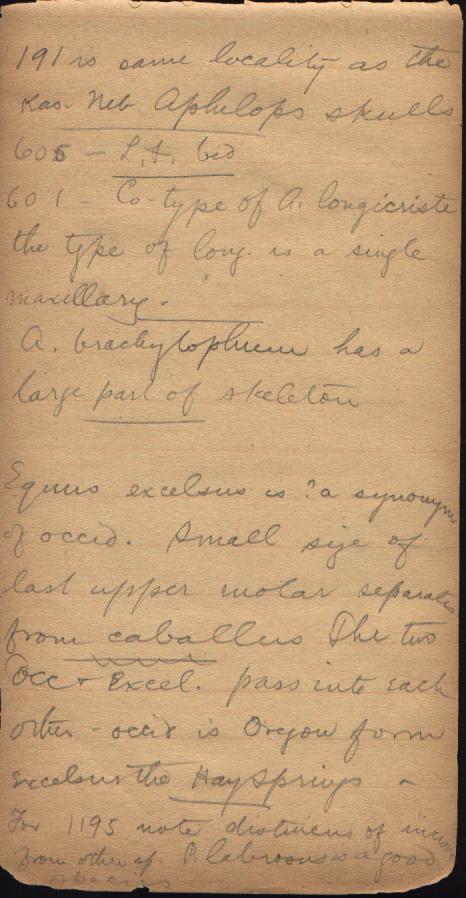 191 is same locality as the
Kas. Neb. Aphelops skulls
605 - L.F. bed
601 - Co-type of A. longicriste
the type of long. is a single
maxillary.
A. brachylophum has a
large part of skeleton
Equus excelsus is ? a synonym
of occid. Small size of
last upper molar separates
from caballus The two
Occ + Excel. pass into each
other - occid is Oregon form
excelsus the Hay Springs -
For 1195 note distincns of incisors
from other sp. P. labrosus is a good
species